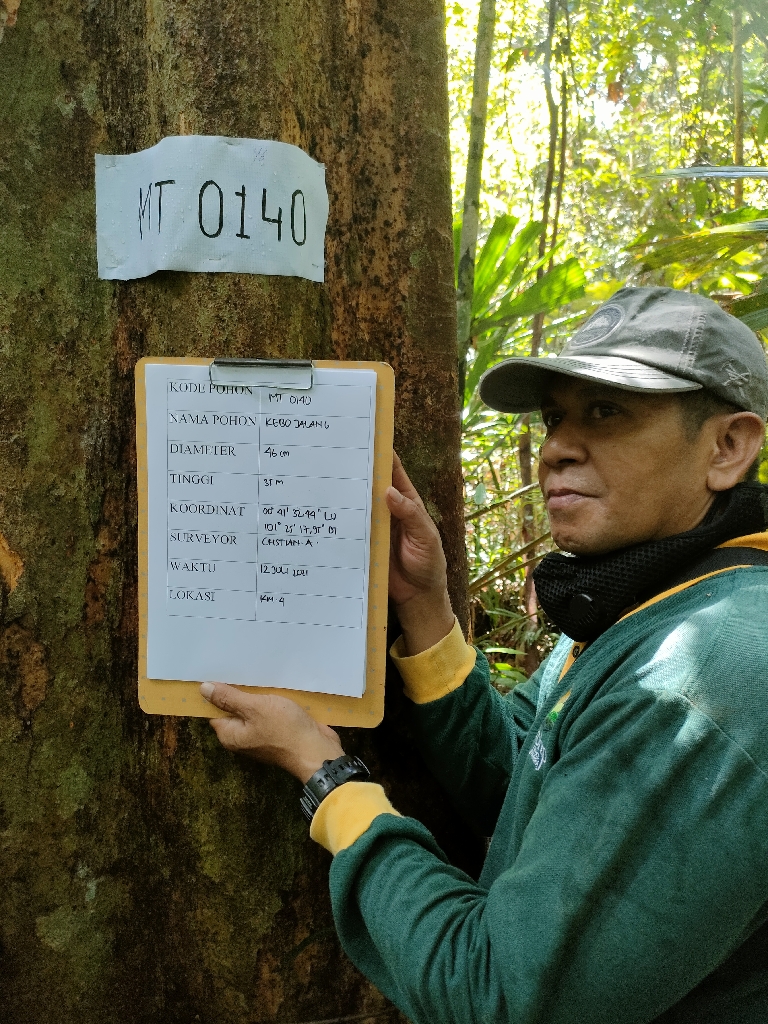 MT 0140
KODE POHON MT 0140
NAMA POHON KEBO JALANG
DIAMETER 46 cm
TINGGI 35 m
KOORDINAT 00° 41' 32,44" LU
101° 25' 17,95" M
SURVEYOR CRISTIAN.A.
WAKTU 12 JULI 2021
LOKASI KM-4